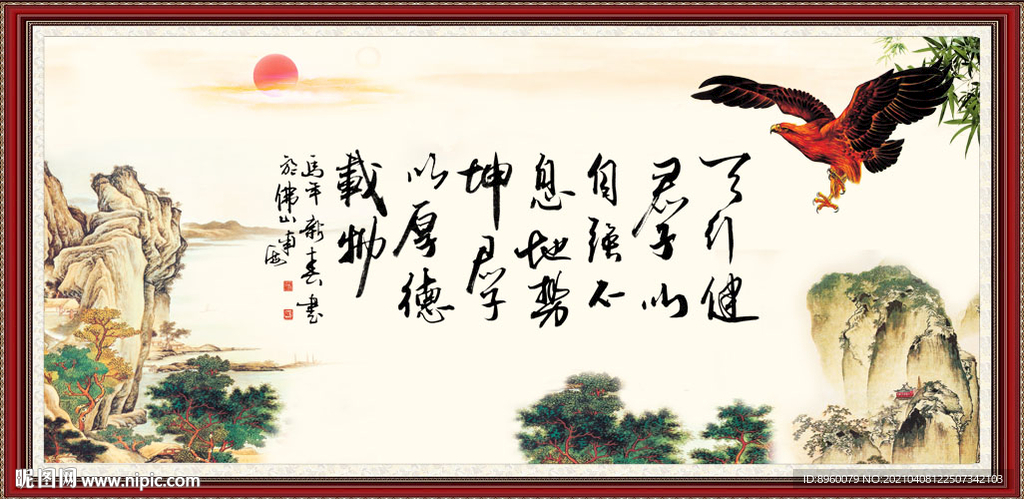 天行健
君子以
自强不
息地势
坤君子
以厚德
載物
馬年新春書
於佛山南海
昵图网 www.nipic.com
ID:8960079 NO:20210408122507342103